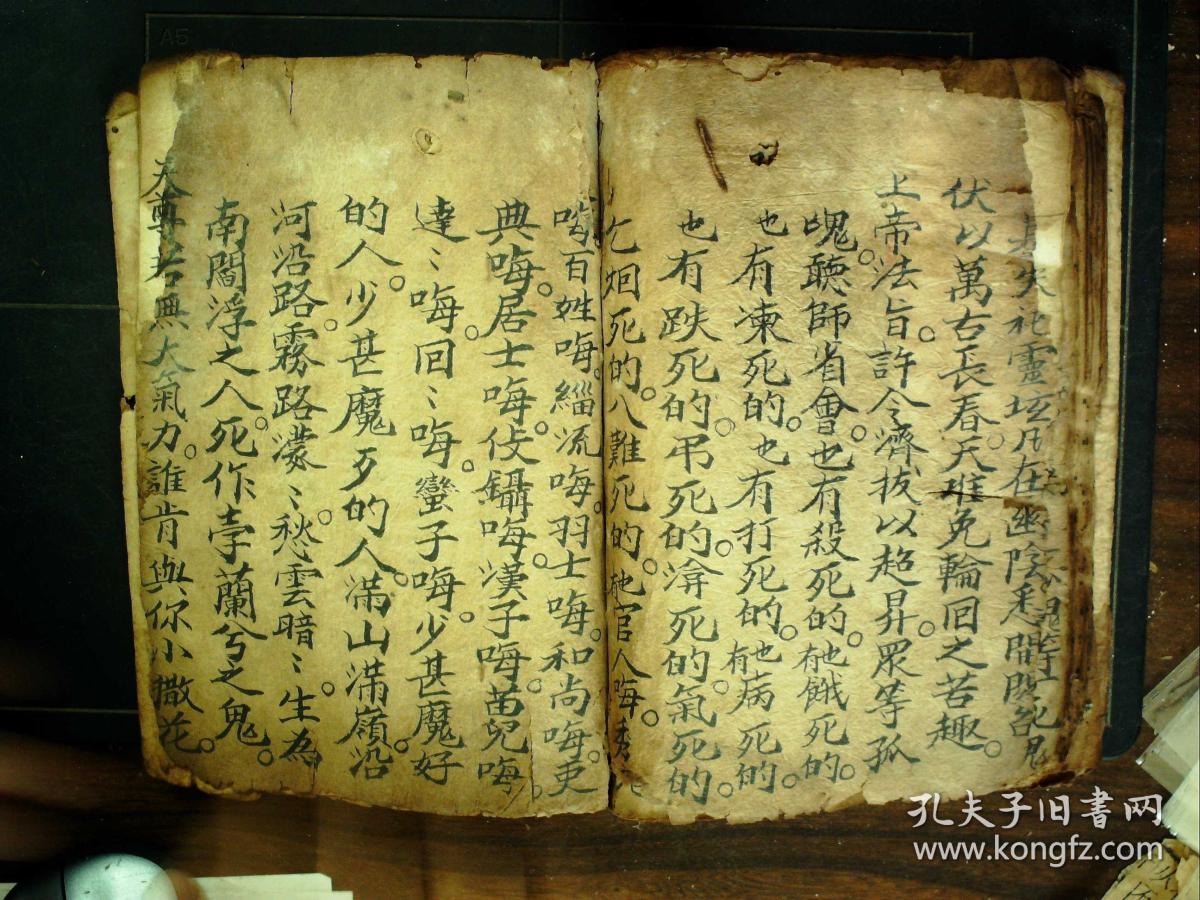 失祀靈壇凡在幽陰悉聞
伏以萬古長春天堆免輪回之苦趣。
上帝法旨。許令濟拔以超昇。眾等孤
魂。聽師省會。也有殺死的。也有餓死的。
也有凍死的。也有打死的。也有病死的。
也有跌死的。吊死的。渰死的。氣死的。
死的。八難死的。他官人晦。秀
百姓晦。緇流晦。羽士晦。和尚晦。吏
典晦。居士晦。伎鑷晦。漢子晦。苗兒晦。
達〻晦。回〻晦。蠻子晦。少甚魔好
的人。少甚魔歹的人。滿山滿嶺沿
河沿路。霧路濛〻。愁雲暗〻。生為
南閻浮之人。死作孛蘭兮之鬼。
天尊若無大氣力。誰肯與你小撒花。
A5
孔夫子旧書网
www.kongfz.com